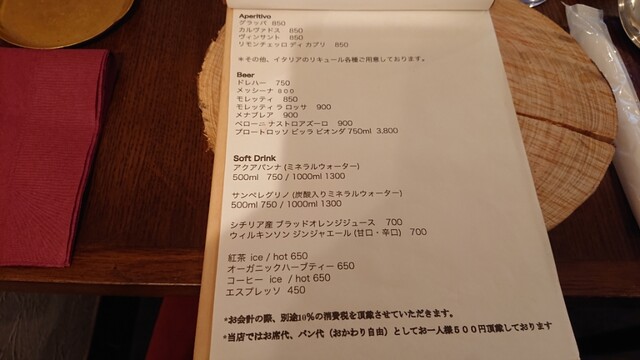 Aperitivo
グラッパ 850
カルヴァドス 850
ヴィンサント 850
リモンチェッロ ディ カプリ 850
＊その他、イタリアのリキュール各種ご用意しております。
Beer
ドレハー 750
メッシーナ 800
モレッティ 850
モレッティ ラ ロッサ 900
メナブレア 900
ペローニ ナストロアズーロ 900
プロートロッソ ビッラ ビオンダ 750ml 3,800
Soft Drink
アクアパンナ (ミネラルウォーター)
500ml 750 / 1000ml 1300
サンペレグリノ (炭酸入りミネラルウォーター)
500ml 750 / 1000ml 1300
シチリア産 ブラッドオレンジジュース 700
ウィルキンソン ジンジャエール (甘口・辛口) 700
紅茶 ice / hot 650
オーガニックハーブティー 650
コーヒー ice / hot 650
エスプレッソ 450
*お会計の際、別途10％の消費税を頂戴させていただきます。
*当店ではお席代、パン代（おかわり自由）としてお一人様５００円頂戴しております